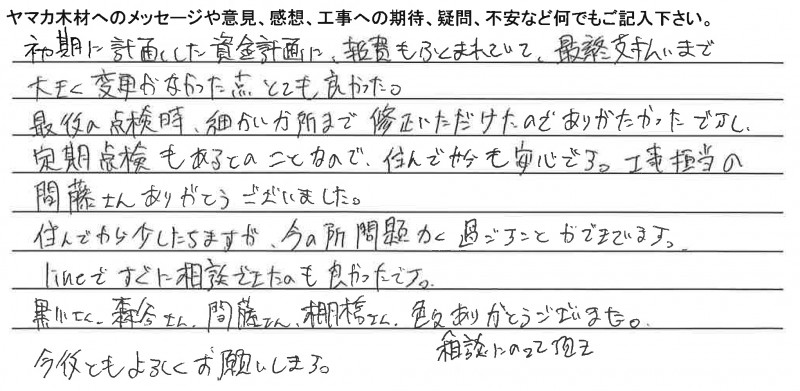 ヤマカ木材へのメッセージや意見、感想、工事への期待、疑問、不安など何でもご記入下さい。
初期に計画した資金計画に、諸費もふくまれていて、最終支払いまで
大きく変更がなかった点とても良かった。
最後の点検時、細かい力所まで修正いただけたのでありがたかったですし、
定期点検もあるとのことなので、住んでからも安心です。工事担当の
間藤さんありがとうございました。
住んでから少したちますが、今の所問題なく過ごすことができています。
lineですぐに相談できたのも良かったです。
黒川さん、森谷さん、間藤さん、棚橋さん、色々ありがとうございました。
相談にのって頂き
今後ともよろしくお願いします。